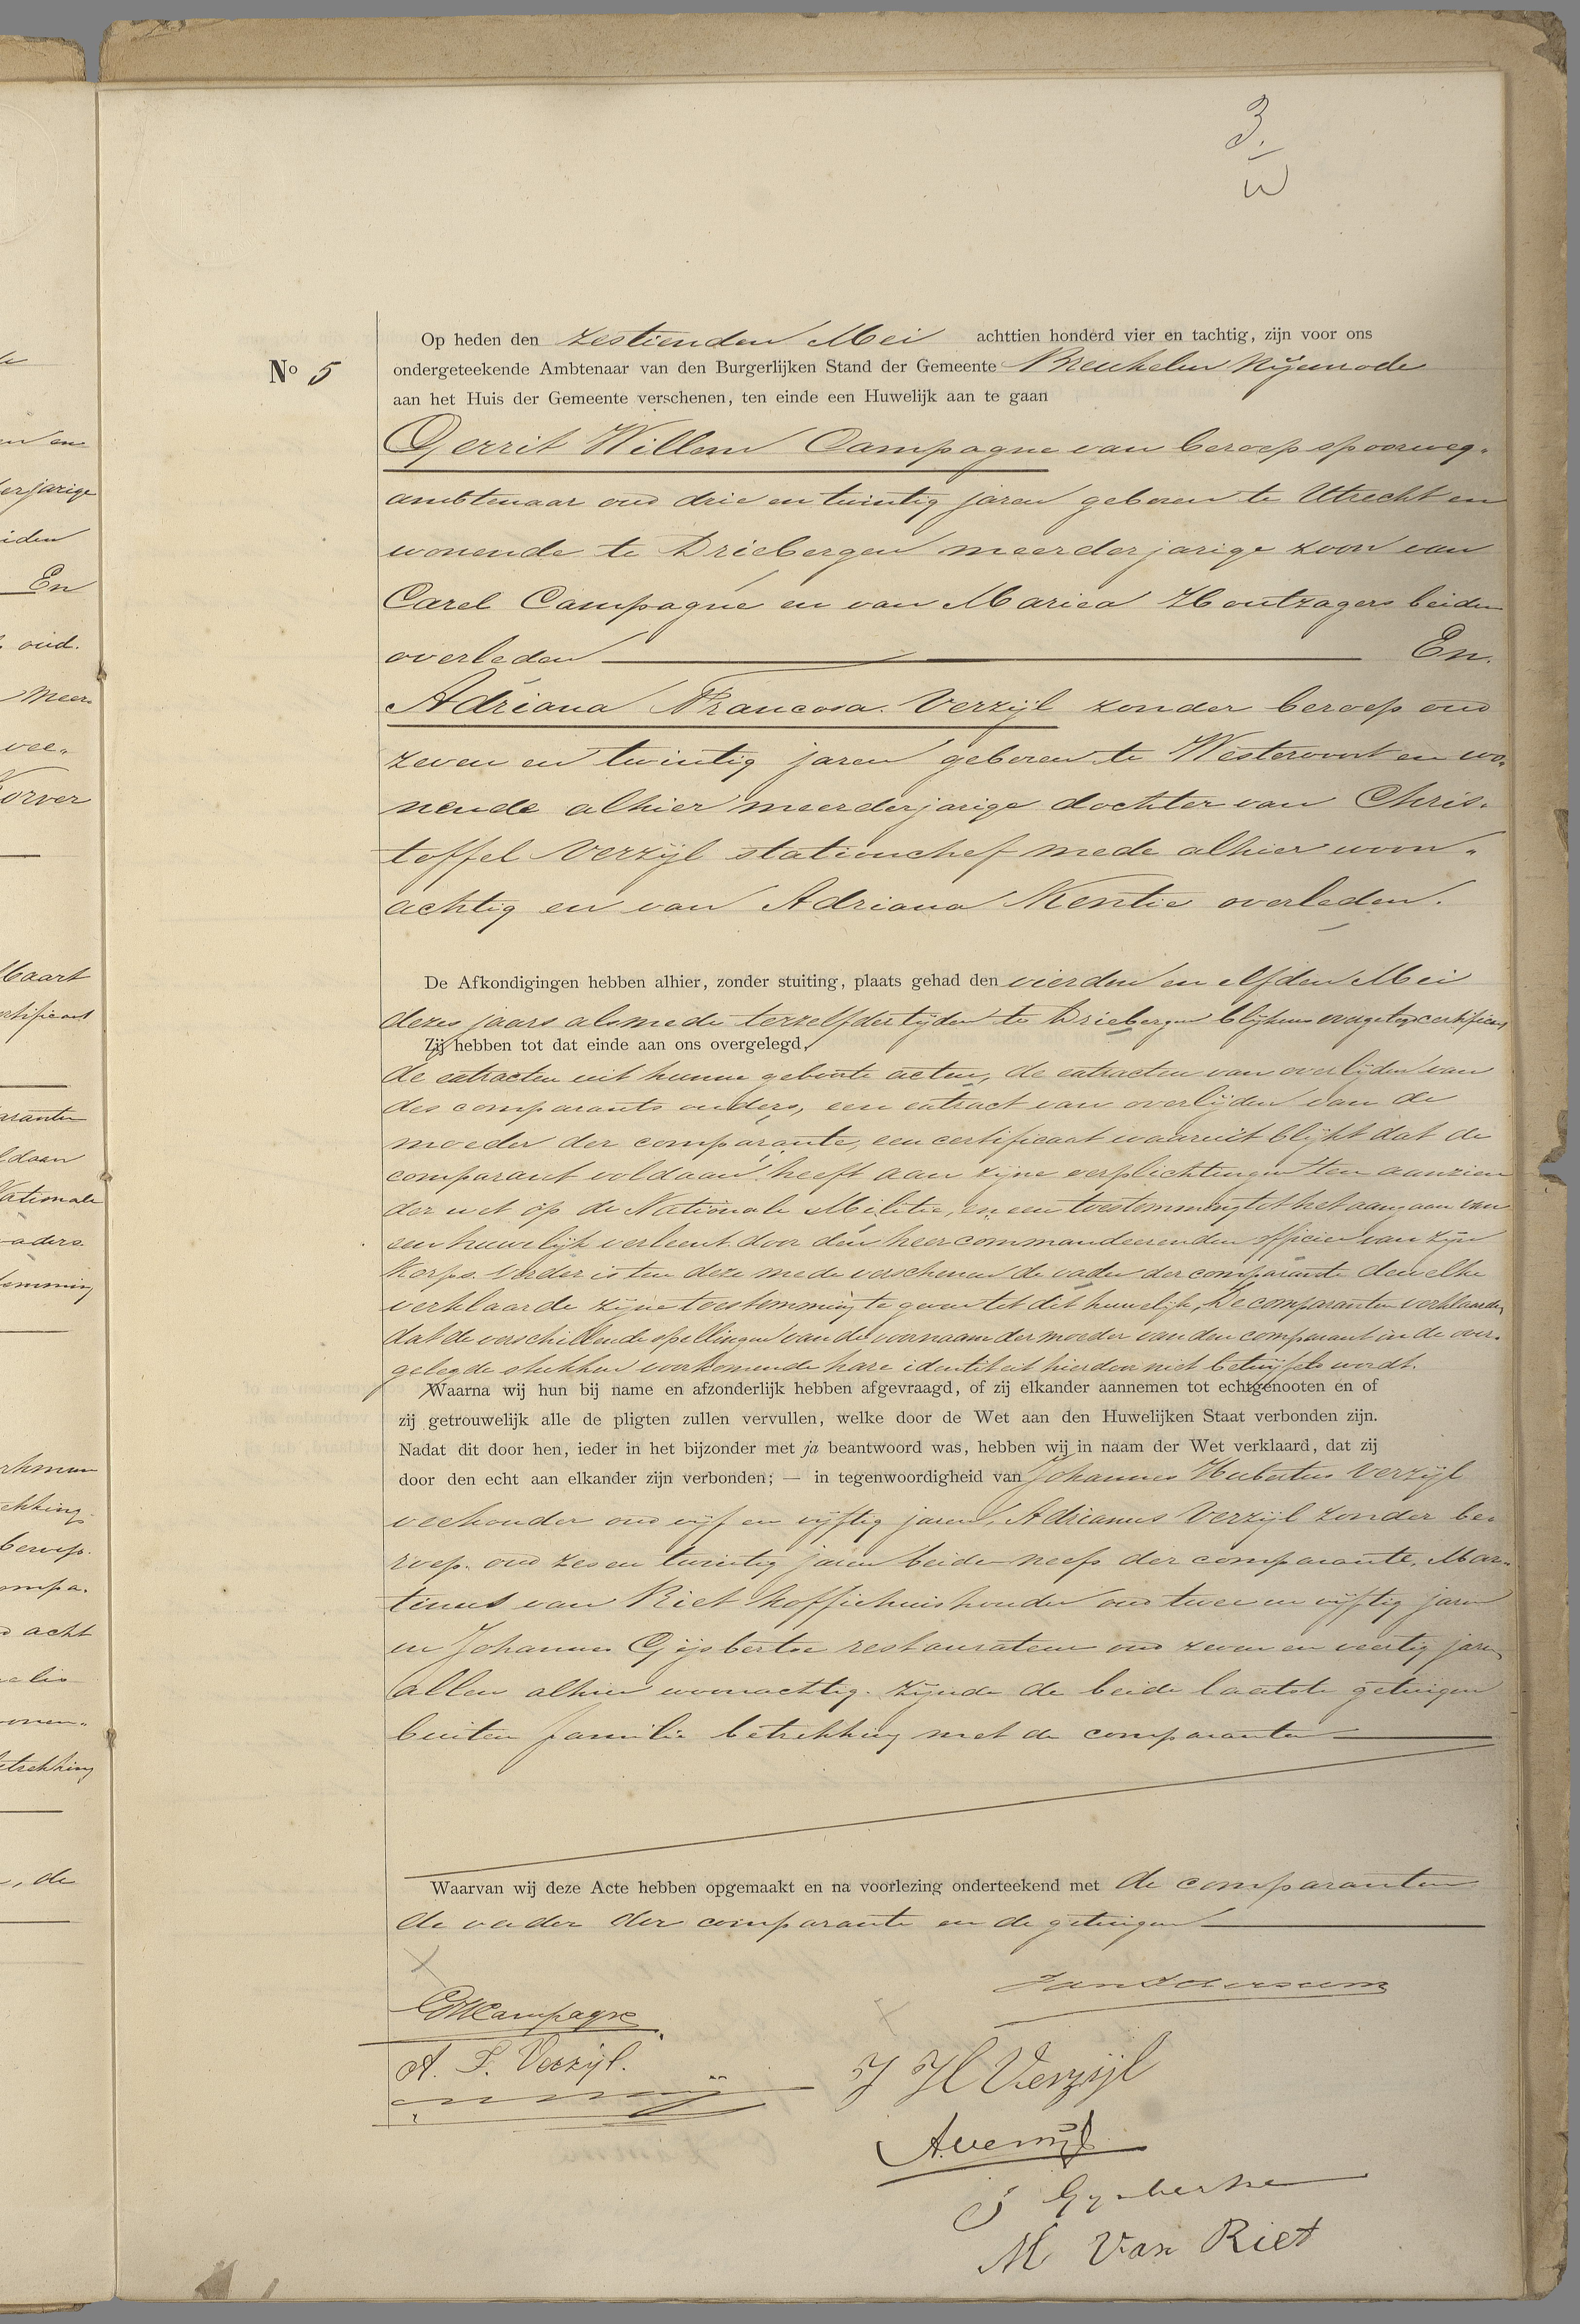 3.
w
Op heden den zestienden Mei achttien honderd vier en tachtig, zijn voor ons
No 5
ondergeteekende Ambtenaar van den Burgerlijken Stand der Gemeente Breukelen Nijenrode
aan het Huis der Gemeente verschenen, ten einde een Huwelijk aan te gaan
Gerrit Willem Campagne van beroep spoorweg-
ambtenaar oud drie en twintig jaren geboren te Utrecht en
wonende te Driebergen meerderjarige zoon van
Carel Campagne en van Maria Houtzagers beiden
overleden En.
Adriana Francosa Verzijl zonder beroep oud
zeven en twintig jaren geboren te Westervoort en wo-
nende alhier meerderjarige dochter van Chris-
toffel Verzijl stationchef mede alhier woon-
achtig en van Adriana Kentie overleden.
De Afkondigingen hebben alhier, zonder stuiting, plaats gehad den vierden en elfden Mei
dezes jaars alsmede terzelfdertijden te Driebergen blijkens overgelegd certificaat
Zij hebben tot dat einde aan ons overgelegd,
de extracten uit hunne geboorte acten, de extracten van overlijden van
des comparants ouders, een extract van overlijden van de
moeder der comparante, een certificaat waaruit blijkt dat de
comparant voldaan heeft aan zijne verplichtingen ten aanzien
der wet op de Nationale Militie, en een toestemming tot het aangaan van
een huwelijk verleent door den heer commandeerenden officier van zijn
Korps. Verder is ten deze mede verschenen de vader der comparante dewelke
verklaarde zijne toestemming te geven tot dit huwelijk, De comparanten verklaarden
dat de verschillende spellingen van de voornaam der moeder van den comparant in de over-
gelegde stukken voorkomende hare identiteit hierdoor niet betwijfeld wordt.
Waarna wij hun bij name en afzonderlijk hebben afgevraagd, of zij elkander aannemen tot echtgenooten en of
zij getrouwelijk alle de pligten zullen vervullen, welke door de Wet aan den Huwelijken Staat verbonden zijn.
Nadat dit door hen, ieder in het bijzonder met ja beantwoord was, hebben wij in naam der Wet verklaard, dat zij
door den echt aan elkander zijn verbonden; — in tegenwoordigheid van Johannes Hubertus Verzijl
veehouder oud vijf en vijftig jaren, Adrianus Verzijl zonder be-
roep. oud zes en twintig jaren beide neefs der comparante, Mar-
tinus van Riet koffiehuishouder oud twee en vijftig jaren
en Johannes Gijsbertse restaurateur oud zeven en veertig jaren
allen alhier woonachtig. zijnde de beide laatste getuigen
buiten familie betrekking met de comparanten
Waarvan wij deze Acte hebben opgemaakt en na voorlezing onderteekend met de comparanten
de vader der comparante en de getuigen
GWCampagne
A. F. Verzijl.
J H Verzijl
A Verzijl
J Gijsbertse
M Van Riet